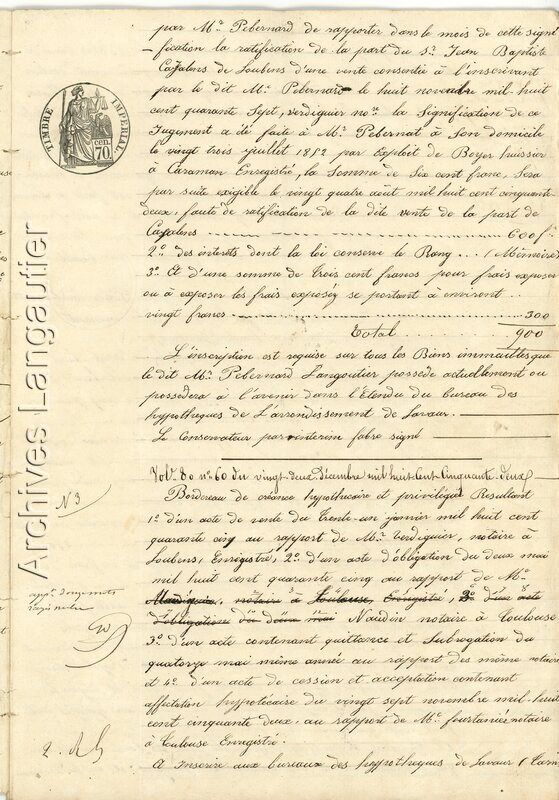 par Mr Pebernard de rapporter dans le mois de cette signi
-fication la ratification de la part du Sr Jean Baptiste
Cazalens de Loubens d'une vente consentie à l'inscrivant
par le dit Mr Pebernard le huit novembre mil huit
cent quarante Sept, verdiguier nore la Signification de ce
Jugement a été faite à Mr Pebernat à Son domicile
le vingt trois juillet 1852 par Exploit de Boyer huissier
à Caraman Enregistré, la Somme de Six cent franc, Sera
par suite exigible le vingt quatre août mil huit cent cinquante
deux, faute de ratification de la dite vente de la part de
Cazalens 600 f
2º des interets dont la loi conserve le Rang ... (Mémoire)
3º Et d'une somme de trois cent francs pour frais exposer
ou à exposer les frais exposés se portant à environt
vingt francs 300
Total 900
L'inscription est requise sur tous les Biens immeubles que
le dit Mr Pebernard Langautier possède actuellement ou
possedera à l'avenir dans l'Etendu du bureau des
hypotheques de L'arrondissement de Lavaur.
Le Conservateur par interim fabre signé
Vol. 80 no 60 du vingt-deux décembre mil huit Cent Cinquante deux
Bordereau de créance hypothécaire et privilégié Resultant
1º d'un acte de vente du trente-un janvier mil huit cent
quarante cinq au rapport de Mr Verdiguier, notaire à
Loubens, Enregistré, 2º d'un acte d'obligation du deux mai
mil huit cent quarante cinq au rapport de Mr
notaire à Toulouse, Enregistré, 3º d'un acte
d'obligation du deux mai Naudin notaire à Toulouse
3º d'un acte contenant quittance et Subrogation du
quatorze mai même année au rapport des même notaire
et 4º d'un acte de cession et acceptation contenant
affectation hypotécaire du vingt sept novembre mil-huit
cent cinquante deux, au rapport de Mr fourtanier notaire
à Toulouse Enregistré.
A Inscrire aux bureaux des hypotheques de Lavaur (Tarn
TIMBRE IMPERIAL
70 cen.
N 3
2.
Archives Langautier